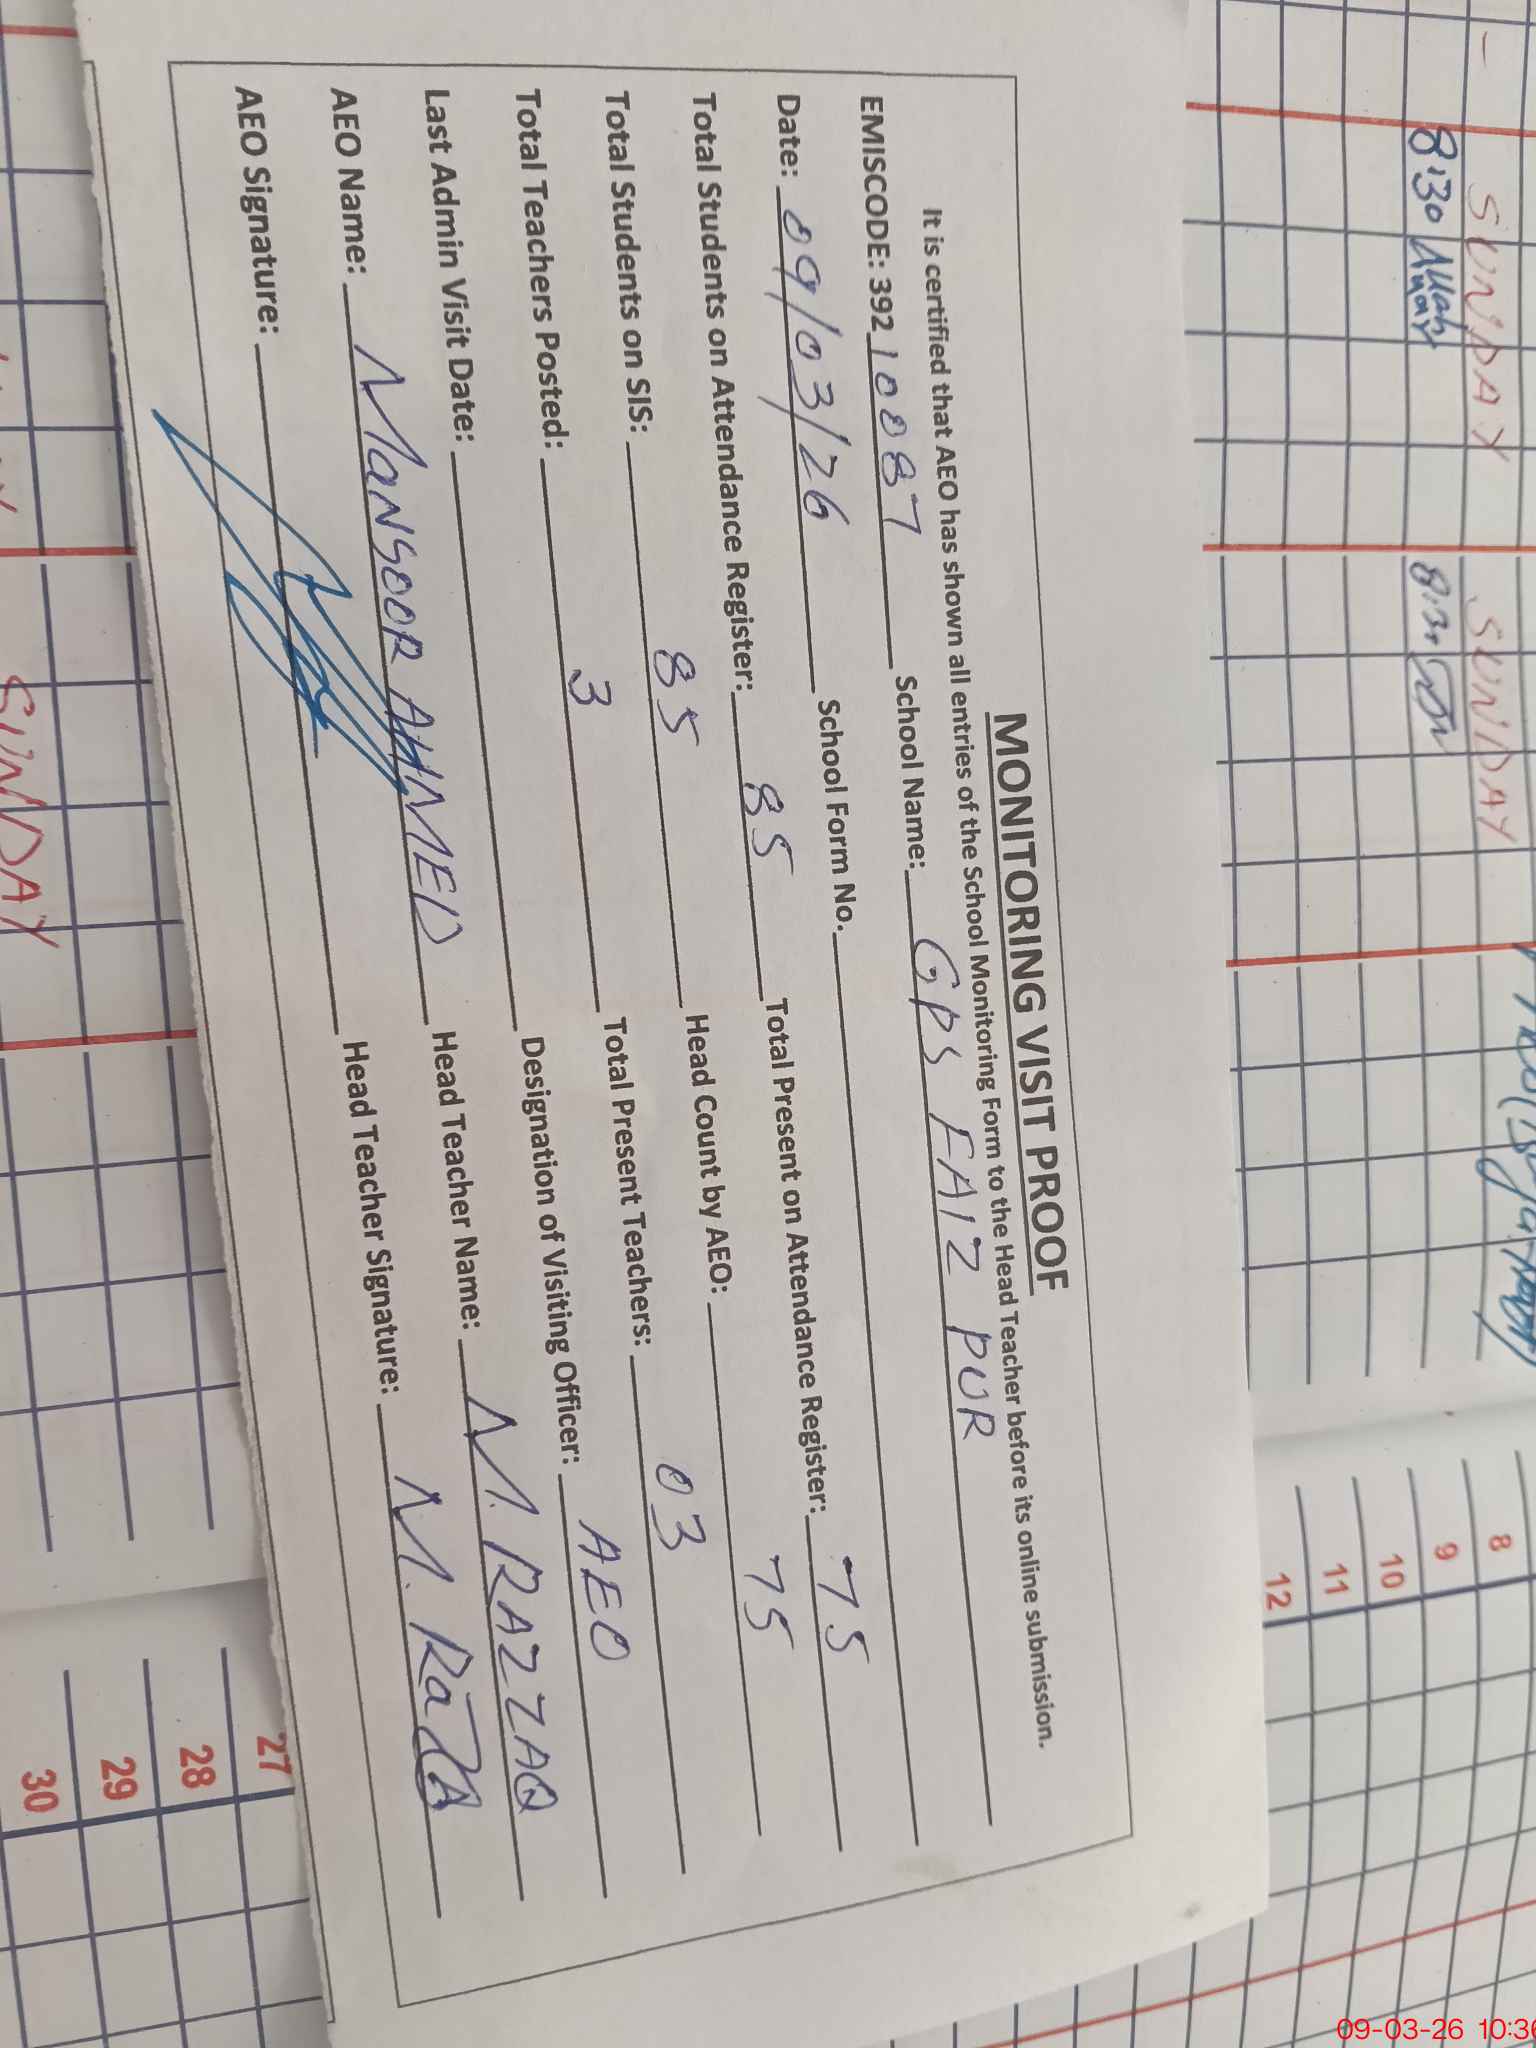 MONITORING VISIT PROOF
It is certified that AEO has shown all entries of the School Monitoring Form to the Head Teacher before its online submission.
EMISCODE: 39210087 School Name: GPS FAIZ PUR
Date: 09/03/26 School Form No.
Total Students on Attendance Register: 85 Total Present on Attendance Register: 75
Total Students on SIS: 85 Head Count by AEO: 75
Total Teachers Posted: 3 Total Present Teachers: 03
Last Admin Visit Date: Designation of Visiting Officer: AEO
AEO Name: MANSOOR AHMED Head Teacher Name: M. RAZZAQ
AEO Signature: Head Teacher Signature: M. Raza
SUNDAY SUNDAY
8:30
8
9
10
11
12
SUNDAY
27
28
29
30
09-03-26 10:36